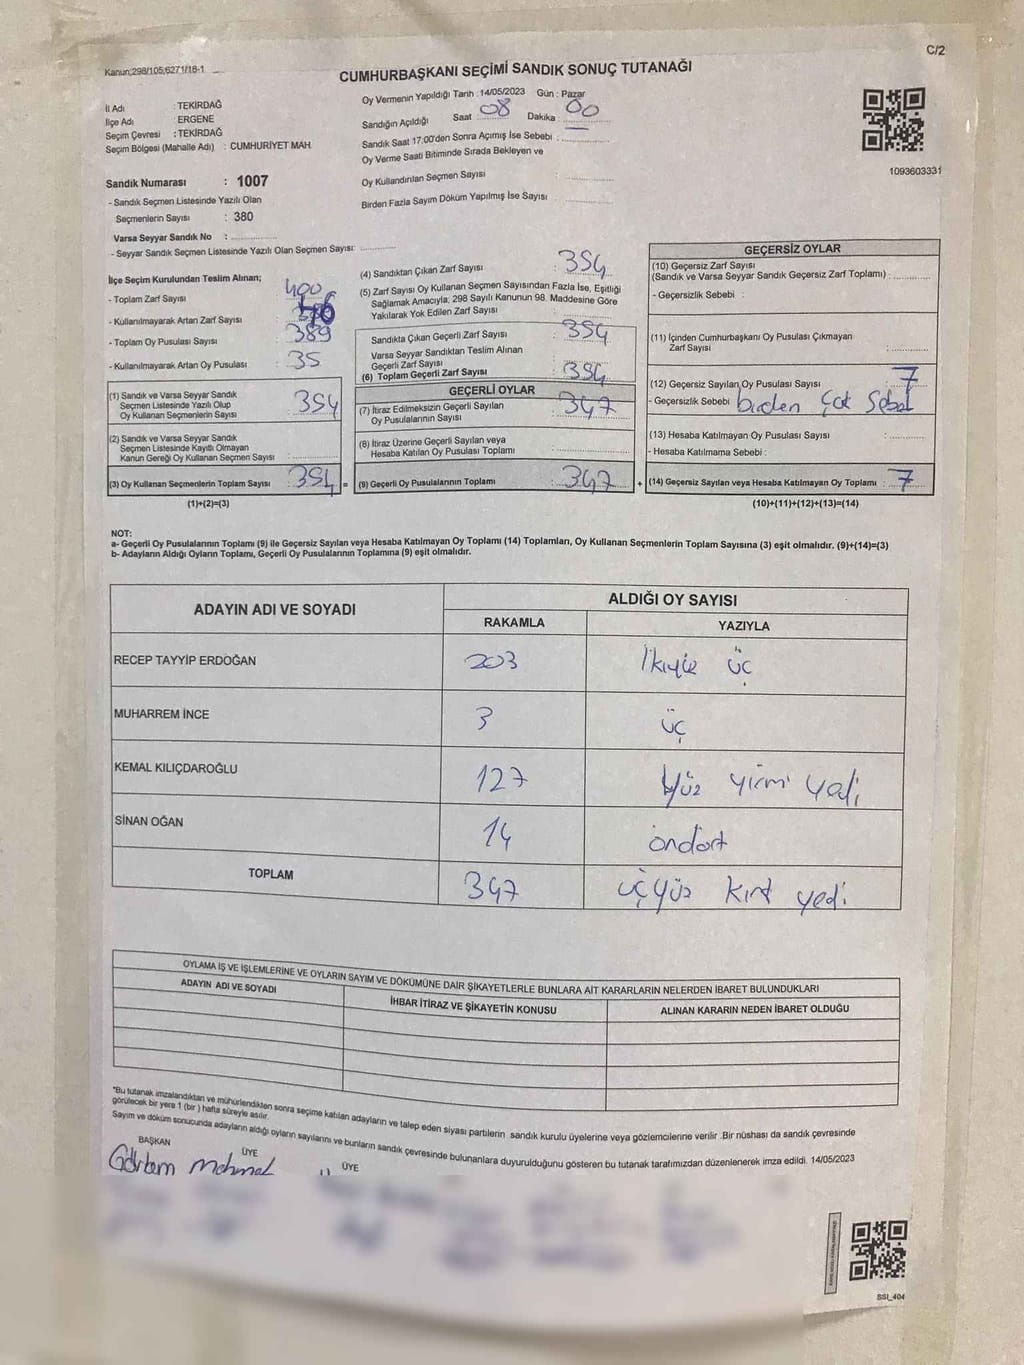 C/2
Kanun;298/105;6271/18-1
CUMHURBAŞKANI SEÇİMİ SANDIK SONUÇ TUTANAĞI
İl Adı : TEKİRDAĞ
İlçe Adı : ERGENE
Seçim Çevresi : TEKİRDAĞ
Seçim Bölgesi (Mahalle Adı) : CUMHURİYET MAH.
Sandık Numarası : 1007
- Sandık Seçmen Listesinde Yazılı Olan
Seçmenlerin Sayısı : 380
Varsa Seyyar Sandık No :
- Seyyar Sandık Seçmen Listesinde Yazılı Olan Seçmen Sayısı:
Oy Vermenin Yapıldığı Tarih : 14/05/2023 Gün : Pazar
Sandığın Açıldığı Saat 08 Dakika : 00
Sandık Saat 17.00'den Sonra Açımış İse Sebebi :
Oy Verme Saati Bitiminde Sırada Bekleyen ve
Oy Kullandırılan Seçmen Sayısı :
Birden Fazla Sayım Döküm Yapılmış İse Sayısı :
1093603331
İlçe Seçim Kurulundan Teslim Alınan;
- Toplam Zarf Sayısı : 400
- Kullanılmayarak Artan Zarf Sayısı :
- Toplam Oy Pusulası Sayısı : 389
- Kullanılmayarak Artan Oy Pusulası : 35
(1) Sandık ve Varsa Seyyar Sandık
Seçmen Listesinde Yazılı Olup
Oy Kullanan Seçmenlerin Sayısı : 354
(2) Sandık ve Varsa Seyyar Sandık
Seçmen Listesinde Kayıtlı Olmayan
Kanun Gereği Oy Kullanan Seçmen Sayısı :
(3) Oy Kullanan Seçmenlerin Toplam Sayısı : 354 =
(1)+(2)=(3)
(4) Sandıktan Çıkan Zarf Sayısı : 354
(5) Zarf Sayısı Oy Kullanan Seçmen Sayısından Fazla İse, Eşitliği
Sağlamak Amacıyla; 298 Sayılı Kanunun 98. Maddesine Göre
Yakılarak Yok Edilen Zarf Sayısı :
Sandıkta Çıkan Geçerli Zarf Sayısı : 354
Varsa Seyyar Sandıktan Teslim Alınan
Geçerli Zarf Sayısı :
(6) Toplam Geçerli Zarf Sayısı : 354
GEÇERLİ OYLAR
(7) İtiraz Edilmeksizin Geçerli Sayılan
Oy Pusulalarının Sayısı : 347
(8) İtiraz Üzerine Geçerli Sayılan veya
Hesaba Katılan Oy Pusulası Toplamı :
(9) Geçerli Oy Pusulalarının Toplamı : 347 +
GEÇERSİZ OYLAR
(10) Geçersiz Zarf Sayısı
(Sandık ve Varsa Seyyar Sandık Geçersiz Zarf Toplamı) :
- Geçersizlik Sebebi
(11) İçinden Cumhurbaşkanı Oy Pusulası Çıkmayan
Zarf Sayısı :
(12) Geçersiz Sayılan Oy Pusulası Sayısı : 7
- Geçersizlik Sebebi : birden Çok Sebal
(13) Hesaba Katılmayan Oy Pusulası Sayısı :
- Hesaba Katılmama Sebebi :
(14) Geçersiz Sayılan veya Hesaba Katılmayan Oy Toplamı : 7
(10)+(11)+(12)+(13)=(14)
NOT:
a- Geçerli Oy Pusulalarının Toplamı (9) ile Geçersiz Sayılan veya Hesaba Katılmayan Oy Toplamı (14) Toplamları, Oy Kullanan Seçmenlerin Toplam Sayısına (3) eşit olmalıdır. (9)+(14)=(3)
b- Adayların Aldığı Oyların Toplamı, Geçerli Oy Pusulalarının Toplamına (9) eşit olmalıdır.
ADAYIN ADI VE SOYADI
ALDIĞI OY SAYISI
RAKAMLA YAZIYLA
RECEP TAYYİP ERDOĞAN 203 İkiyüz üç
MUHARREM İNCE 3 üç
KEMAL KILIÇDAROĞLU 127 Yüz yirmi yedi
SİNAN OĞAN 14 ondört
TOPLAM 347 üçyüz kırk yedi
OYLAMA İŞ VE İŞLEMLERİNE VE OYLARIN SAYIM VE DÖKÜMÜNE DAİR ŞİKAYETLERLE BUNLARA AİT KARARLARIN NELERDEN İBARET BULUNDUKLARI
ADAYIN ADI VE SOYADI İHBAR İTİRAZ VE ŞİKAYETİN KONUSU ALINAN KARARIN NEDEN İBARET OLDUĞU
*Bu tutanak imzalandıktan ve mühürlendikten sonra seçime katılan adayların ve talep eden siyasi partilerin sandık kurulu üyelerine veya gözlemcilerine verilir .Bir nüshası da sandık çevresinde
görülecek bir yere 1 (bir ) hafta süreyle asılır.
Sayım ve döküm sonucunda adayların aldığı oyların sayılarını ve bunların sandık çevresinde bulunanlara duyurulduğunu gösteren bu tutanak tarafımızdan düzenlenerek imza edildi. 14/05/2023
BAŞKAN ÜYE ÜYE
SSI_404